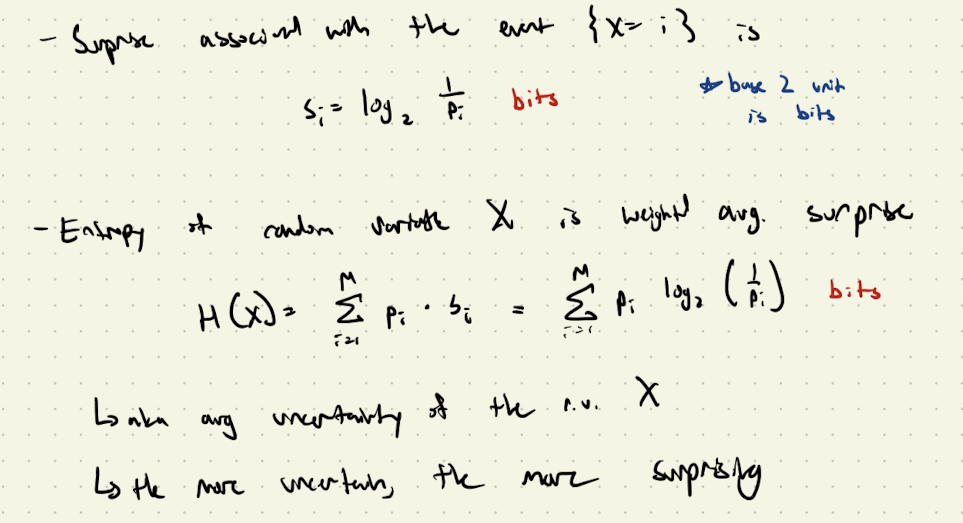 - Surprise associated with the event {X = i} is
s_i = log_2 1/p_i bits
* base 2 unit
is bits
- Entropy of random variable X is weighted avg. surprise
H(X) = Σ_{i=1}^{M} p_i · s_i = Σ_{i=1}^{M} p_i log_2 (1/p_i) bits
↳ aka avg uncertainty of the r.v. X
↳ the more uncertain, the more surprising